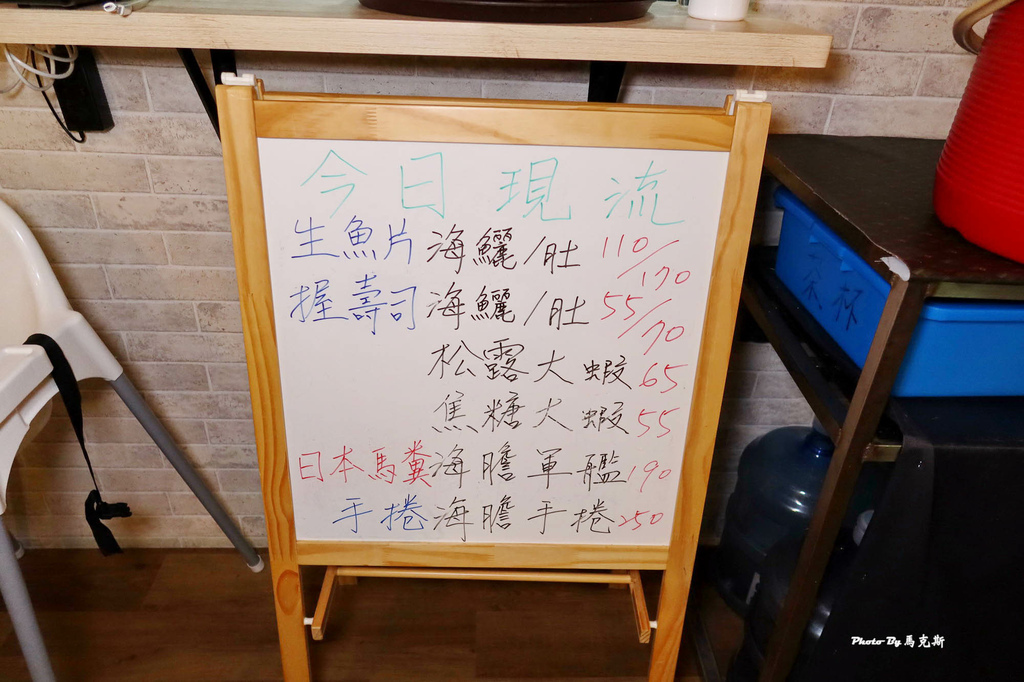 今日現流
生魚片 海鱺/肚 110/170
握壽司 海鱺/肚 55/70
松露大蝦 65
焦糖大蝦 55
日本馬糞海膽軍艦 190
手捲 海膽手捲 250
茶杯
Photo By 馬克斯